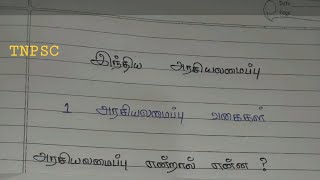 TNPSC
இந்திய அரசியலமைப்பு
1 அரசியலமைப்பு வகைகள்
அரசியலமைப்பு என்றால் என்ன ?